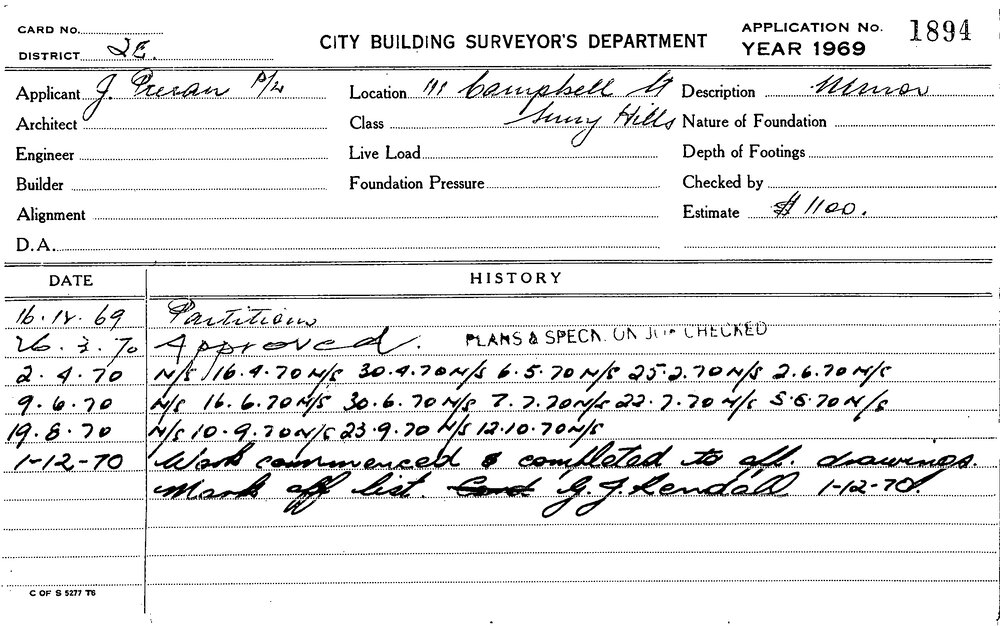 CARD No.
DISTRICT 2E.
CITY BUILDING SURVEYOR'S DEPARTMENT
APPLICATION No. 1894
YEAR 1969
Applicant J. P/L
Location 111 Campbell St
Description Minor
Architect
Class Surry Hills
Nature of Foundation
Engineer
Live Load
Depth of Footings
Builder
Foundation Pressure
Checked by
Alignment
Estimate $1100.
D.A.
DATE HISTORY
16.12.69 Partitions
26.3.70 Approved. PLANS & SPECN. ON JOB CHECKED
2.4.70 N/S 16.4.70 N/S 30.4.70 N/S 6.5.70 N/S 25.2.70 N/S 2.6.70 N/S
9.6.70 N/S 16.6.70 N/S 30.6.70 N/S 7.7.70 N/S 22.7.70 N/S 5.8.70 N/S
19.8.70 N/S 10.9.70 N/S 23.9.70 N/S 12.10.70 N/S
1-12-70 Work commenced & completed to aff. drawings.
Mark off list. G.J. Kendall 1-12-70.
C OF S 5277 T6